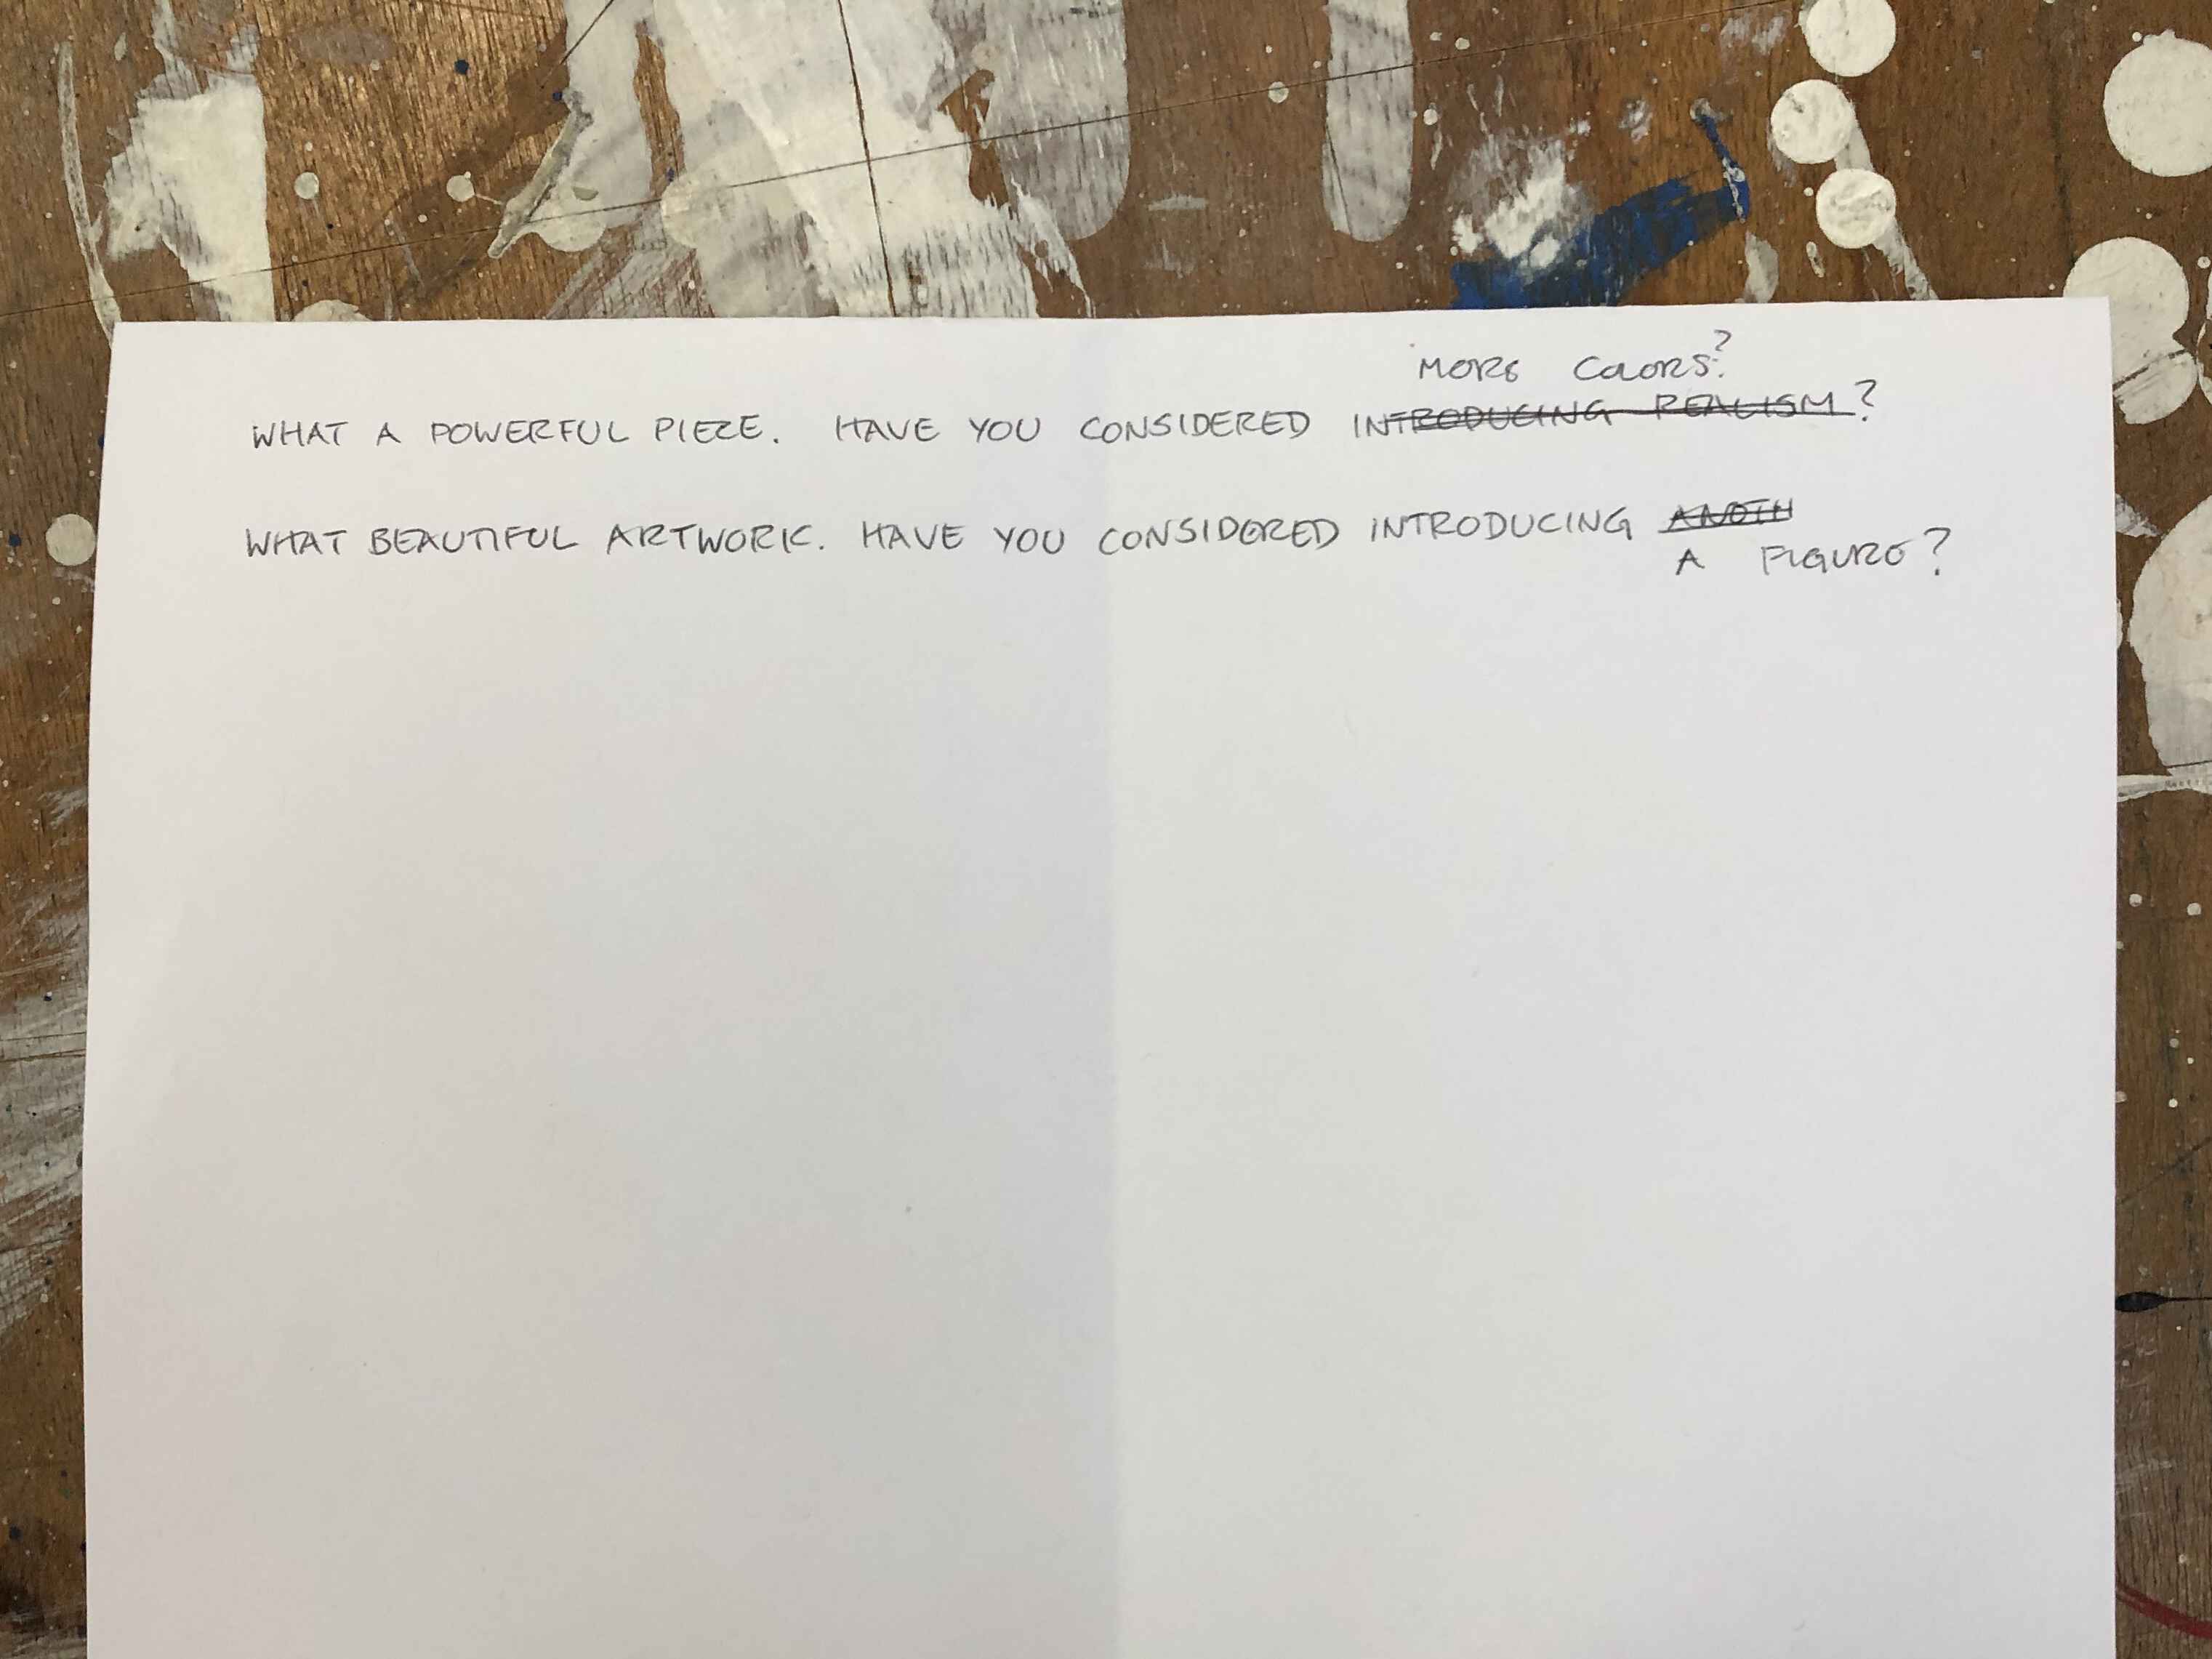 MORE COLORS?
WHAT A POWERFUL PIECE. HAVE YOU CONSIDERED INTRODUCING REALISM?
WHAT BEAUTIFUL ARTWORK. HAVE YOU CONSIDERED INTRODUCING ANOTH
A FIGURE?